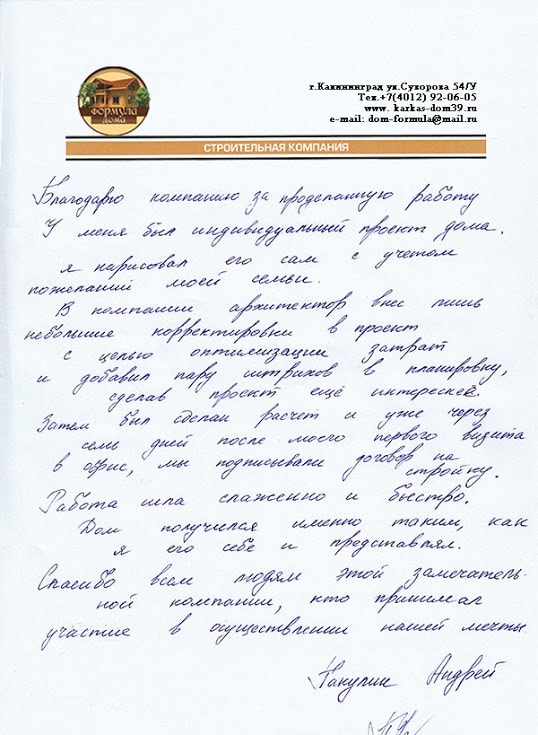 Формула
дома
г.Калининград ул.Сухороха 54/У
Тел.+7(4012) 92-06-05
www. karkas-dom39.ru
e-mail: dom-formula@mail.ru
СТРОИТЕЛЬНАЯ КОМПАНИЯ
Благодарю компанию за проделанную работу
У меня был индивидуальный проект дома.
я нарисовал его сам с учетом
пожеланий моей семьи.
В компании архитектор внес лишь
небольшие корректировки в проект
с целью оптимизации затрат
и добавил пару штрихов в планировку,
сделав проект ещё интересней.
Затем был сделан расчет и уже через
семь дней после моего первого визита
в офис, мы подписывали договор на
стройку.
Работа шла слаженно и быстро.
Дом получился именно таким, как
я его себе и представлял.
Спасибо всем людям этой замечатель-
ной компании, кто принимал
участие в осуществлении нашей мечты.
Накулин Андрей